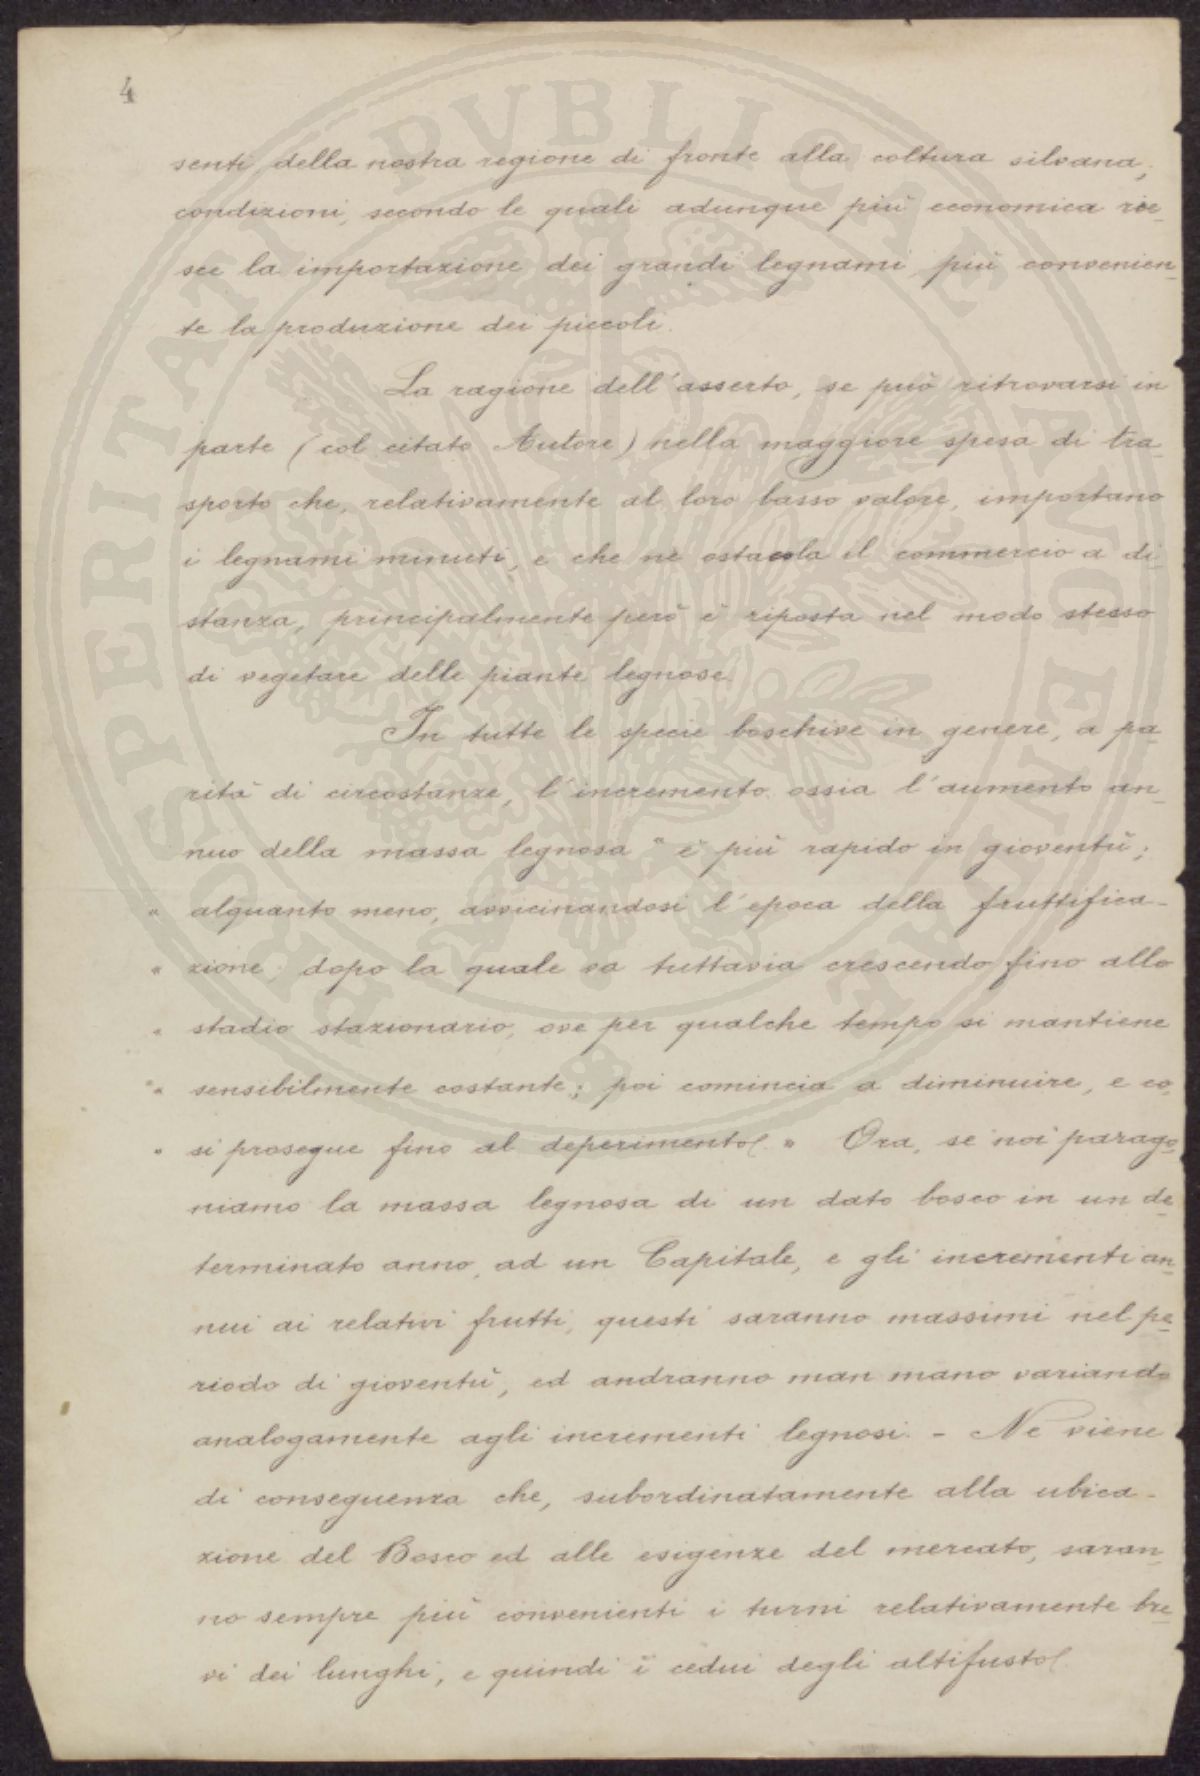 4
senti della nostra regione di fronte alla coltura silvana,
condizioni, secondo le quali adunque più economica rie-
sce la importazione dei grandi legnami, più convenien-
te la produzione dei piccoli.
La ragione dell'asserto, se può ritrovarsi in
parte (col citato Autore) nella maggiore spesa di tra-
sporto che, relativamente al loro basso valore, importano
i legnami minuti, e che ne ostacola il commercio a di-
stanza, principalmente però è riposta nel modo stesso
di vegetare delle piante legnose.
In tutte le specie boschive in genere, a pa-
rità di circostanze, l'incremento ossia l'aumento an-
nuo della massa legnosa " è più rapido in gioventù;
" alquanto meno, avvicinandosi l'epoca della fruttifica-
" zione; dopo la quale va tuttavia crescendo fino allo
" stadio stazionario, ove per qualche tempo si mantiene
" sensibilmente costante; poi comincia a diminuire, e co-
" si prosegue fino al deperimento. " Ora, se noi parago-
niamo la massa legnosa di un dato bosco in un de-
terminato anno, ad un Capitale, e gli incrementi an-
nui ai relativi frutti, questi saranno massimi nel pe-
riodo di gioventù, ed andranno man mano variando
analogamente agli incrementi legnosi. - Ne viene
di conseguenza che, subordinatamente alla ubica-
zione del Bosco ed alle esigenze del mercato, saran-
no sempre più convenienti i turni relativamente bre-
vi dei lunghi, e quindi i cedui degli altifusto.
PROSPERITATI PVBLICAE AVGENDAE